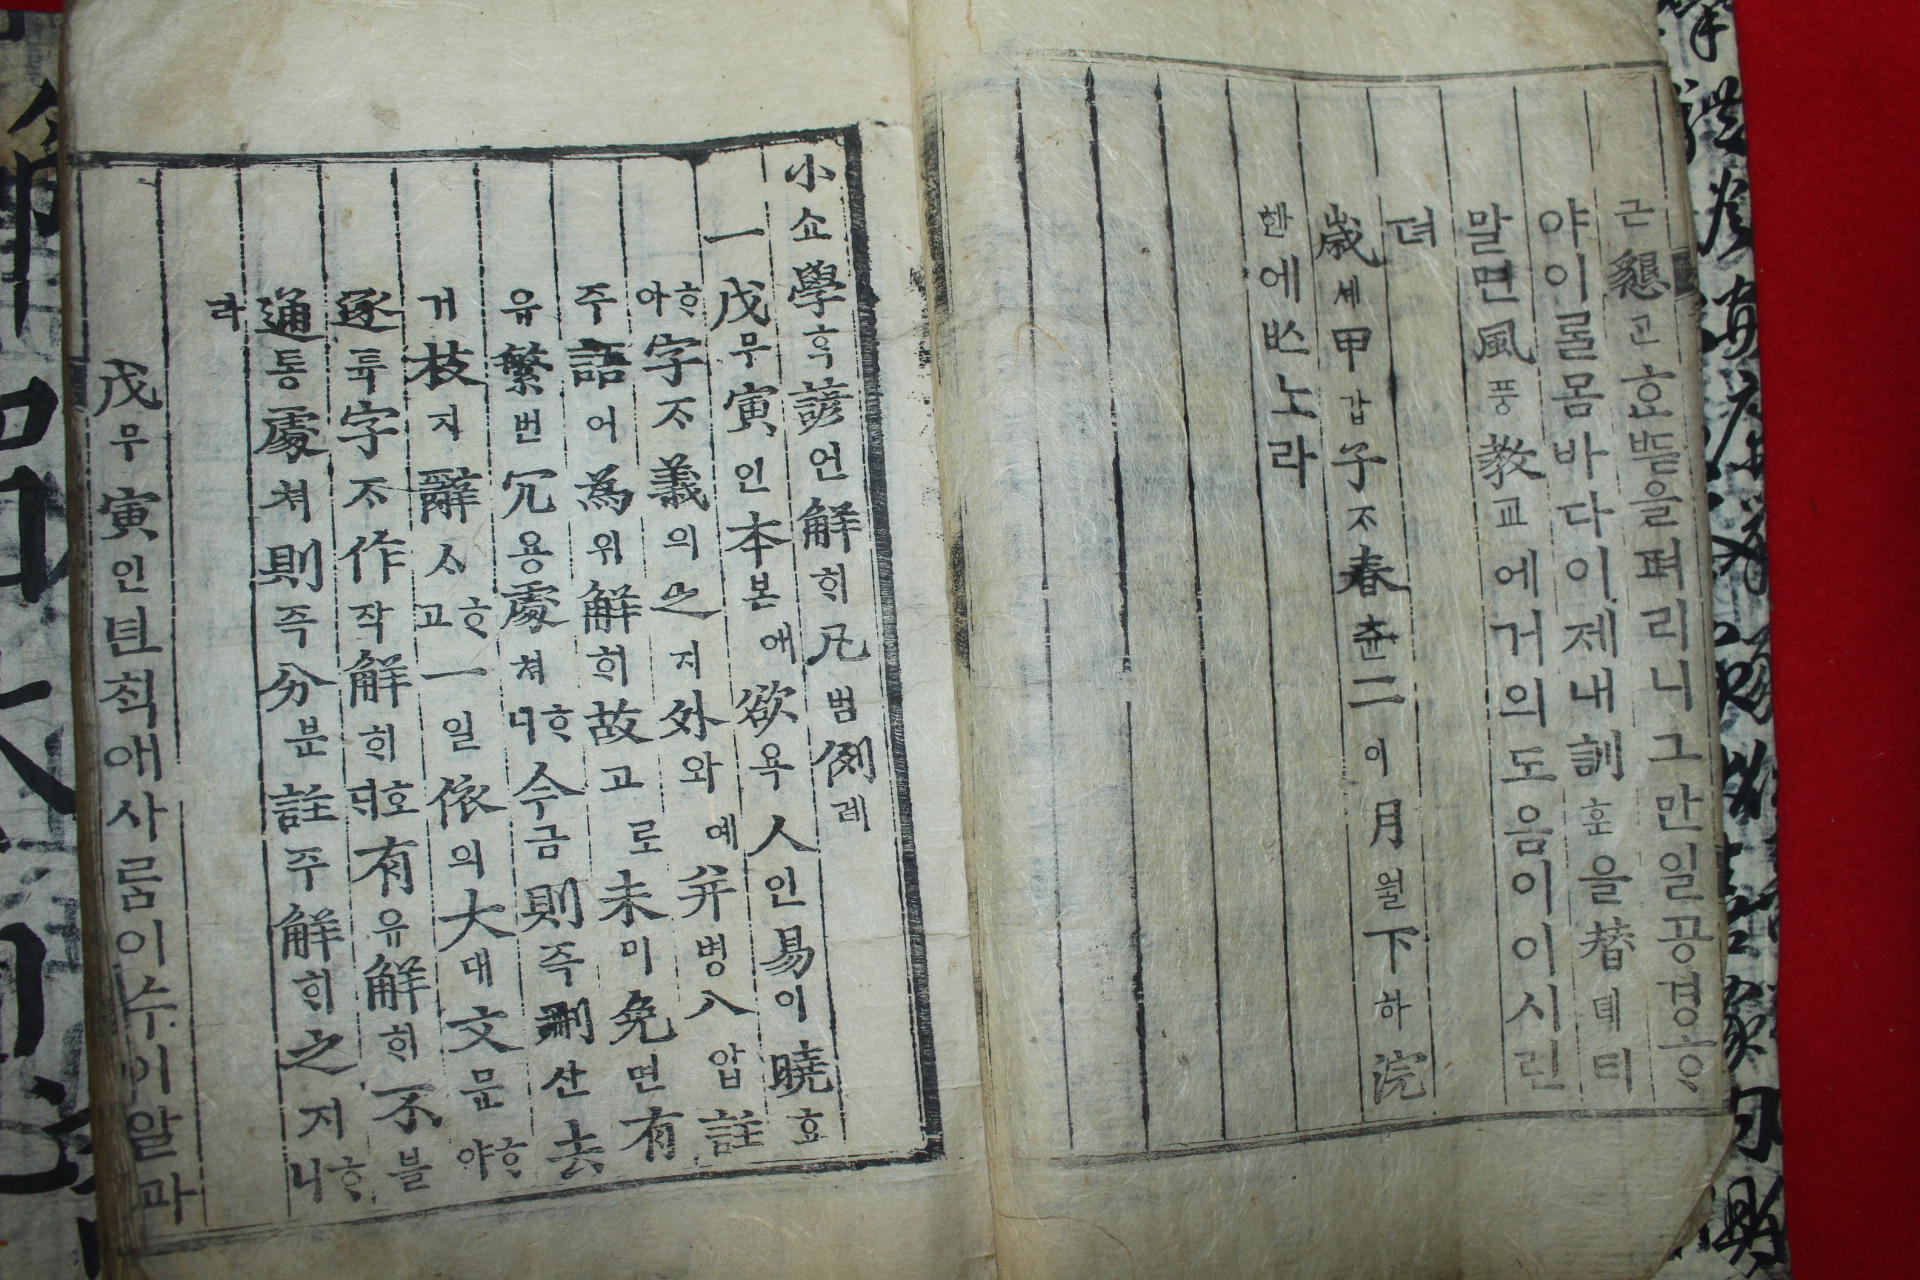 근懇고ᄒᆞᆫᄠᅳᆮ을펴리니그만일공경ᄒᆞ
야이ᄅᆞᆯ몸바다이제내訓훈을替톄티
말면風풍敎교에거의도음이이시린
뎌
歲세甲갑子ᄌᆞ春츈二이月월下하浣
한에ᄡᅳ노라
小쇼學ᄒᆞᆨ諺언解ᄒᆡ凡범例례
一戊무寅인本본애欲욕人인易이曉효
ᄒᆞ야字ᄌᆞ義의之지外와예幷병入압註
주語어爲위解ᄒᆡ故고로未미免면有
유繁번冗용處쳐ᄒᆞ니今금則즉刪산去
거枝지辭ᄉᆞᄒᆞ고一일依의大대文문ᄒᆞ야
逐튝字ᄌᆞ作작解ᄒᆡ호ᄃᆡ有유解ᄒᆡ不블
通통處쳐則즉分분註주解ᄒᆡ之지ᄒᆞ니
라
戊무寅인년ᄎᆡᆨ애사ᄅᆞᆷ이수이알과